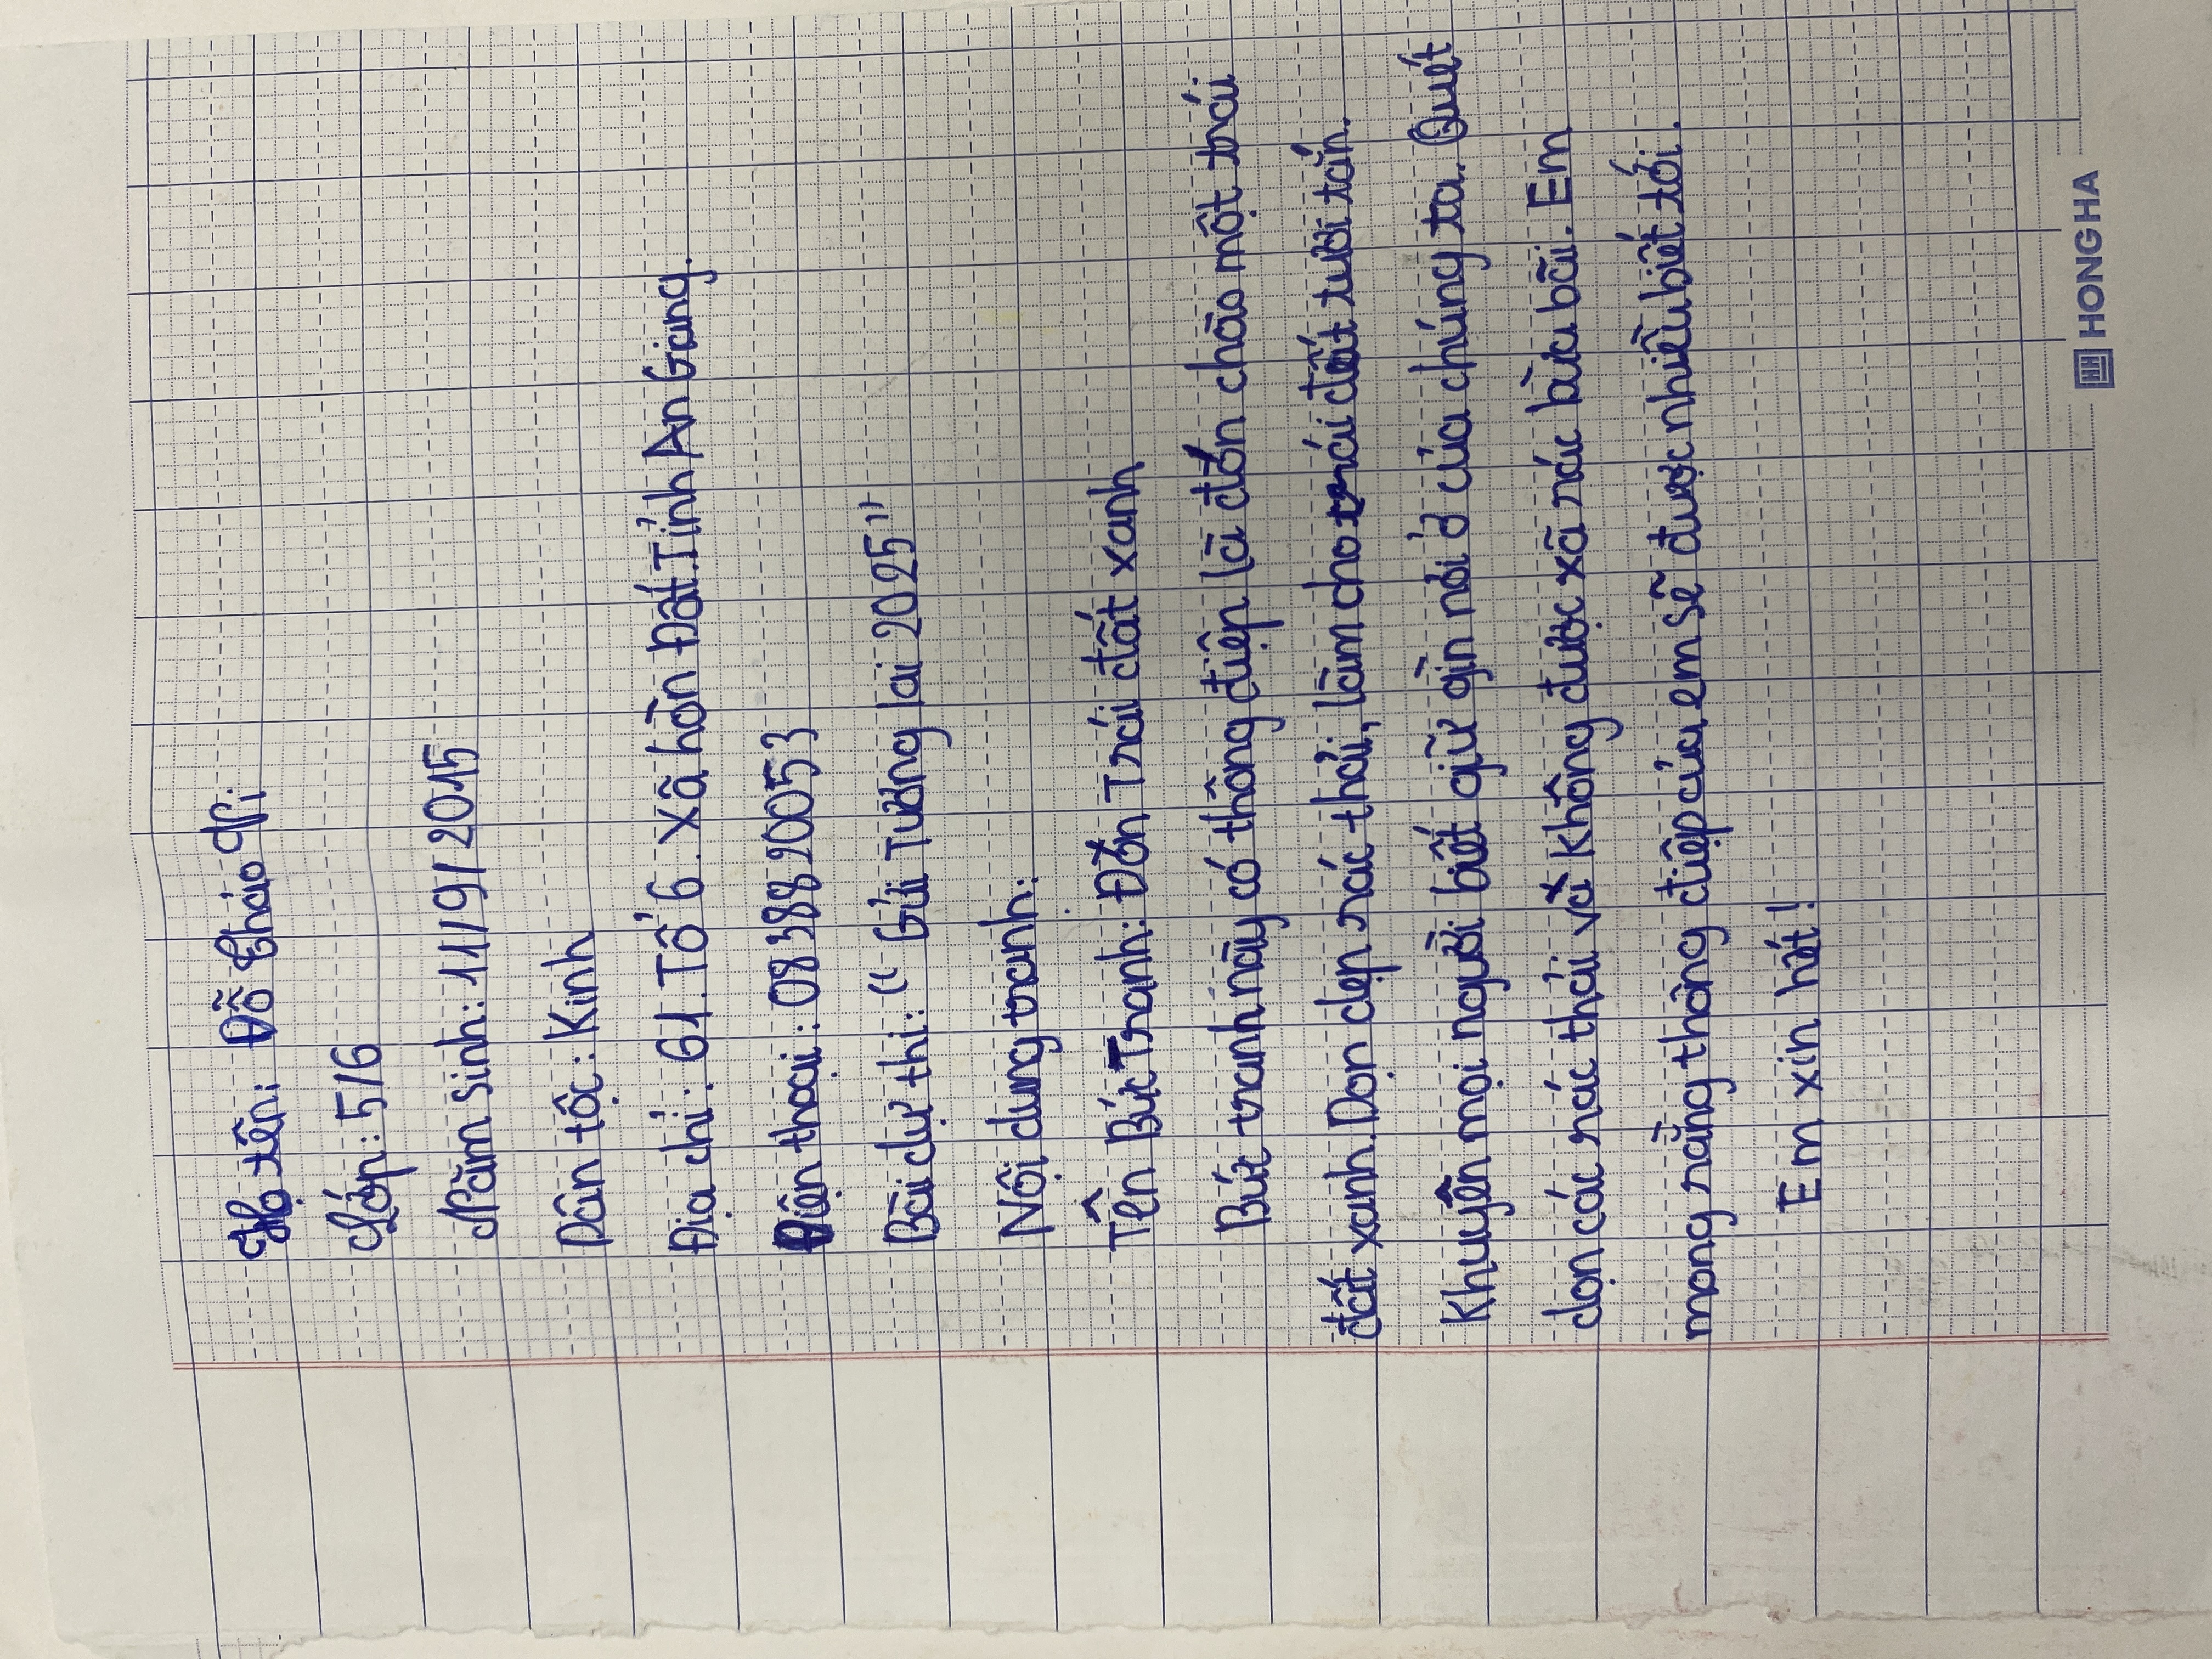 Họ tên: Đỗ Thảo Nhi
Lớp: 5/6
Năm sinh: 11/9/2015
Dân tộc: Kinh
Địa chỉ: 61. Tổ 6. Xã hòn Đất. Tỉnh An Giang.
Điện thoại: 0838820053
Bài dự thi: "Gửi Tương lai 2025"
Nội dung tranh:
Tên Bức Tranh: Đón Trái đất xanh
Bức tranh này có thông điệp là đón chào một trái
đất xanh. Dọn dẹp rác thải, làm cho trái đất tươi tắn.
Khuyên mọi người biết giữ gìn nơi ở của chúng ta. Quét
dọn các rác thải và không được xã rác bừa bãi. Em
mong rằng thông điệp của em sẽ được nhiều biết tới.
Em xin hết!
HONG HA